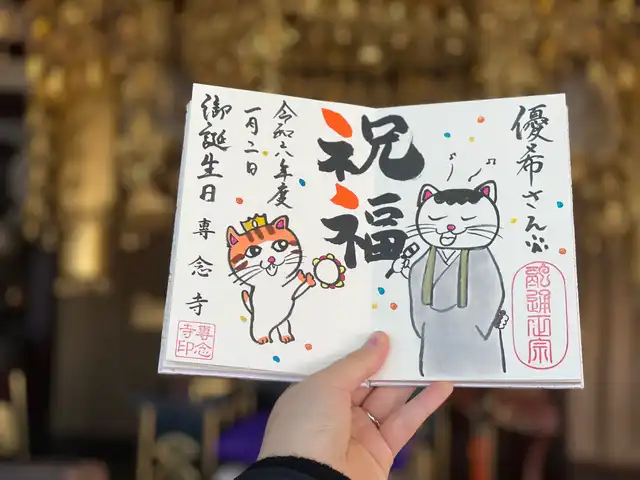 優希さん
融通正宗
祝福
令和六年度
一月二日
御誕生日 専念寺
専念寺印